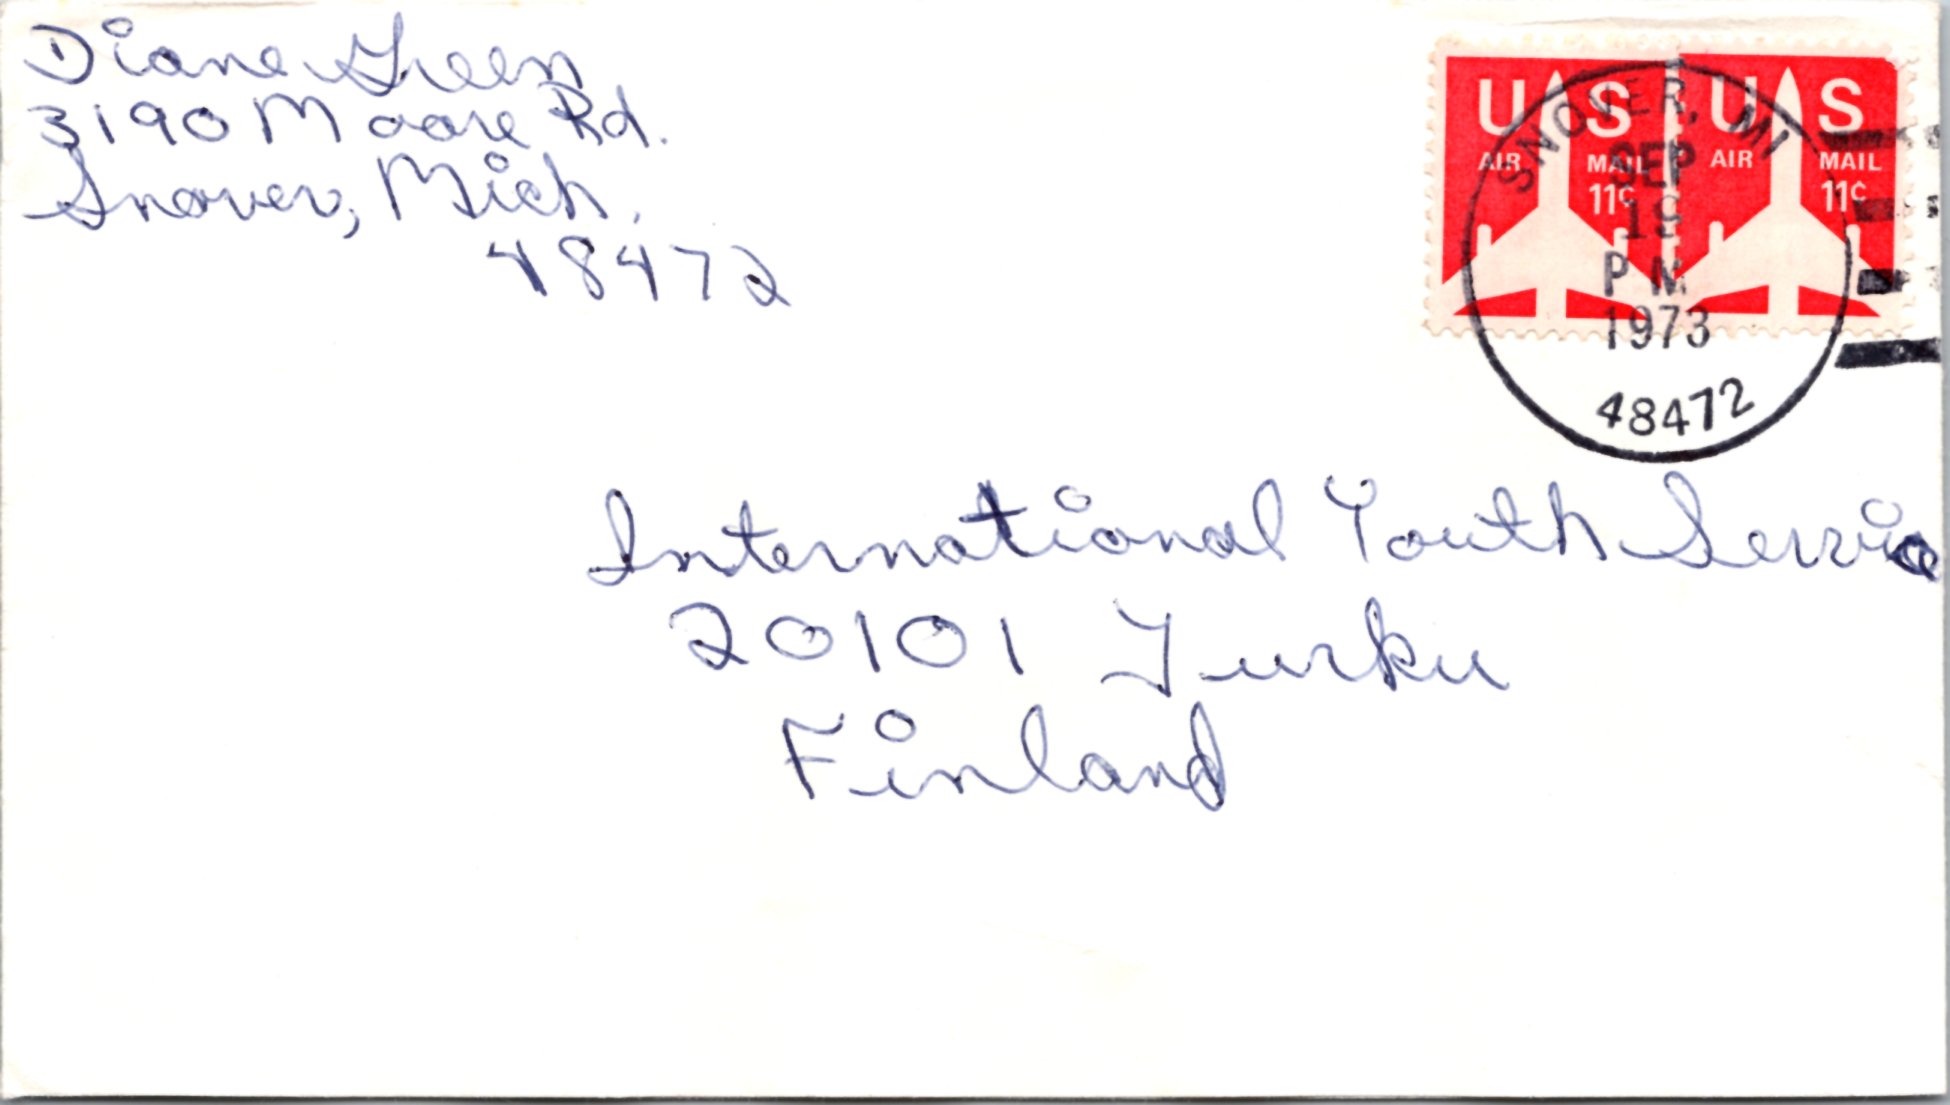 Diane Green
3190 Moore Rd.
Snover, Mich.
48472
U S
AIR MAIL
11¢
U S
AIR MAIL
11¢
SNOVER, MI
SEP
19
PM
1973
48472
International Youth Service
20101 Turku
Finland